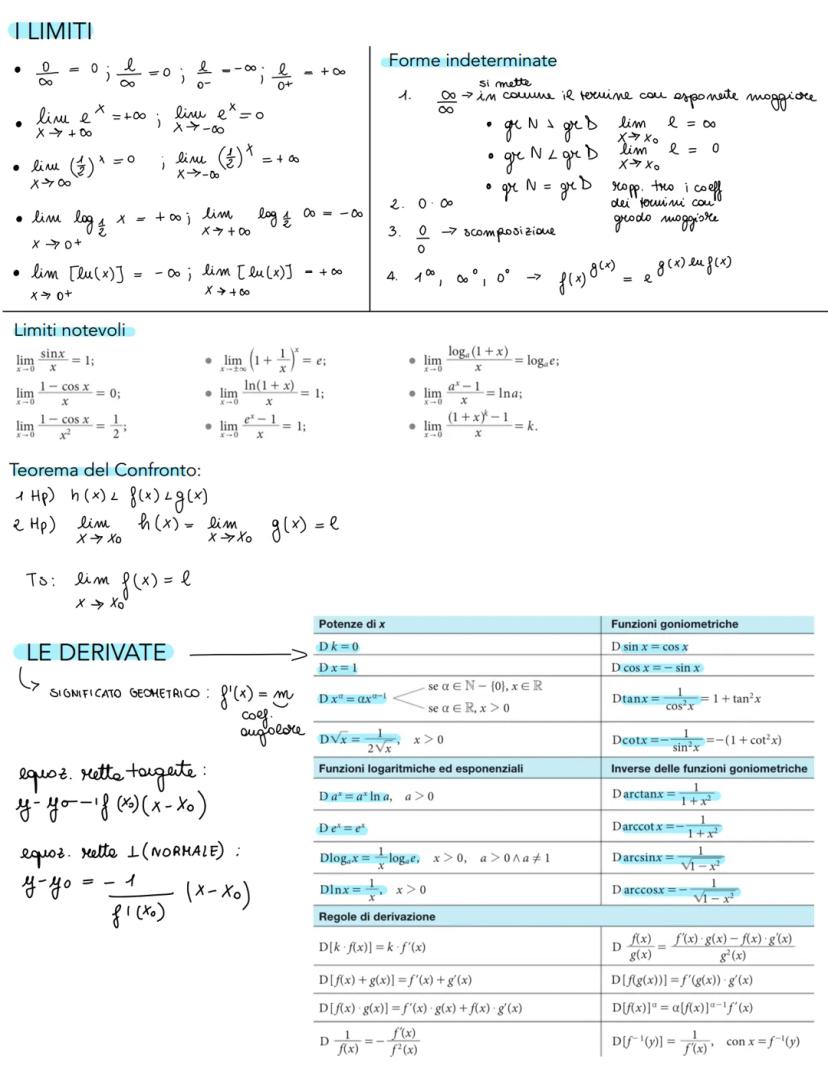 I LIMITI
• 0/∞ = 0 ; ℓ/∞ = 0 ; ℓ/0- = -∞ ; ℓ/0+ = +∞
• lim x→+∞ e^x = +∞ ; lim x→-∞ e^x = 0
• lim x→∞ (1/2)^x = 0 ; lim x→-∞ (1/2)^x = +∞
• lim x→0+ log_1/2 x = +∞ ; lim x→+∞ log_1/2 ∞ = -∞
• lim x→0+ [ln(x)] = -∞ ; lim x→+∞ [ln(x)] = +∞
Forme indeterminate
1. ∞/∞ → si mette in comune il termine con esponente maggiore
• gr N > gr D lim x→x₀ ℓ = ∞
• gr N < gr D lim x→x₀ ℓ = 0
• gr N = gr D rapp. tra i coeff
dei termini con
grado maggiore
2. 0·∞
3. 0/0 → scomposizione
4. 1^∞, ∞^0, 0^0 → f(x)^g(x) = e^g(x) ln f(x)
Limiti notevoli
lim x→0 sinx/x = 1;
lim x→0 (1 − cos x)/x = 0;
lim x→0 (1 − cos x)/x² = 1/2;
• lim x→±∞ (1 + 1/x)^x = e;
• lim x→0 ln(1 + x)/x = 1;
• lim x→0 (e^x − 1)/x = 1;
• lim x→0 log_a(1 + x)/x = log_a e;
• lim x→0 (a^x − 1)/x = lna;
• lim x→0 ((1 + x)^k − 1)/x = k.
Teorema del Confronto:
1 Hp) h(x) < f(x) < g(x)
2 Hp) lim x→x₀ h(x) = lim x→x₀ g(x) = ℓ
Ts: lim x→x₀ f(x) = ℓ
LE DERIVATE →
↳ SIGNIFICATO GEOMETRICO : f'(x) = m
coef.
angolare
equaz. retta tangente :
y-y₀ = f'(x₀)(x-x₀)
equaz. retta ⊥ (NORMALE) :
y-y₀ = -1/f'(x₀) (x-x₀)
Potenze di x
D k = 0
D x = 1
D x^α = αx^α−1
se α ∈ ℕ − {0}, x ∈ ℝ
se α ∈ ℝ, x > 0
D√x = 1/(2√x), x > 0
Funzioni goniometriche
D sin x = cos x
D cos x = − sin x
Dtanx = 1/cos²x = 1 + tan²x
Dcotx = −1/sin²x = −(1 + cot²x)
Funzioni logaritmiche ed esponenziali
D a^x = a^x ln a, a > 0
D e^x = e^x
Dlog_a x = 1/x log_a e, x > 0, a > 0 ∧ a ≠ 1
Dlnx = 1/x, x > 0
Inverse delle funzioni goniometriche
D arctanx = 1/(1 + x²)
D arccot x = −1/(1 + x²)
D arcsinx = 1/√(1 − x²)
D arccosx = −1/√(1 − x²)
Regole di derivazione
D[k · f(x)] = k · f'(x)
D[f(x) + g(x)] = f'(x) + g'(x)
D[f(x) · g(x)] = f'(x) · g(x) + f(x) · g'(x)
D 1/f(x) = −f'(x)/f²(x)
D f(x)/g(x) = (f'(x) · g(x) − f(x) · g'(x))/g²(x)
D[f(g(x))] = f'(g(x)) · g'(x)
D[f(x)]^α = α[f(x)]^α−1 f'(x)
D[f^−1(y)] = 1/f'(x), con x = f^−1(y)